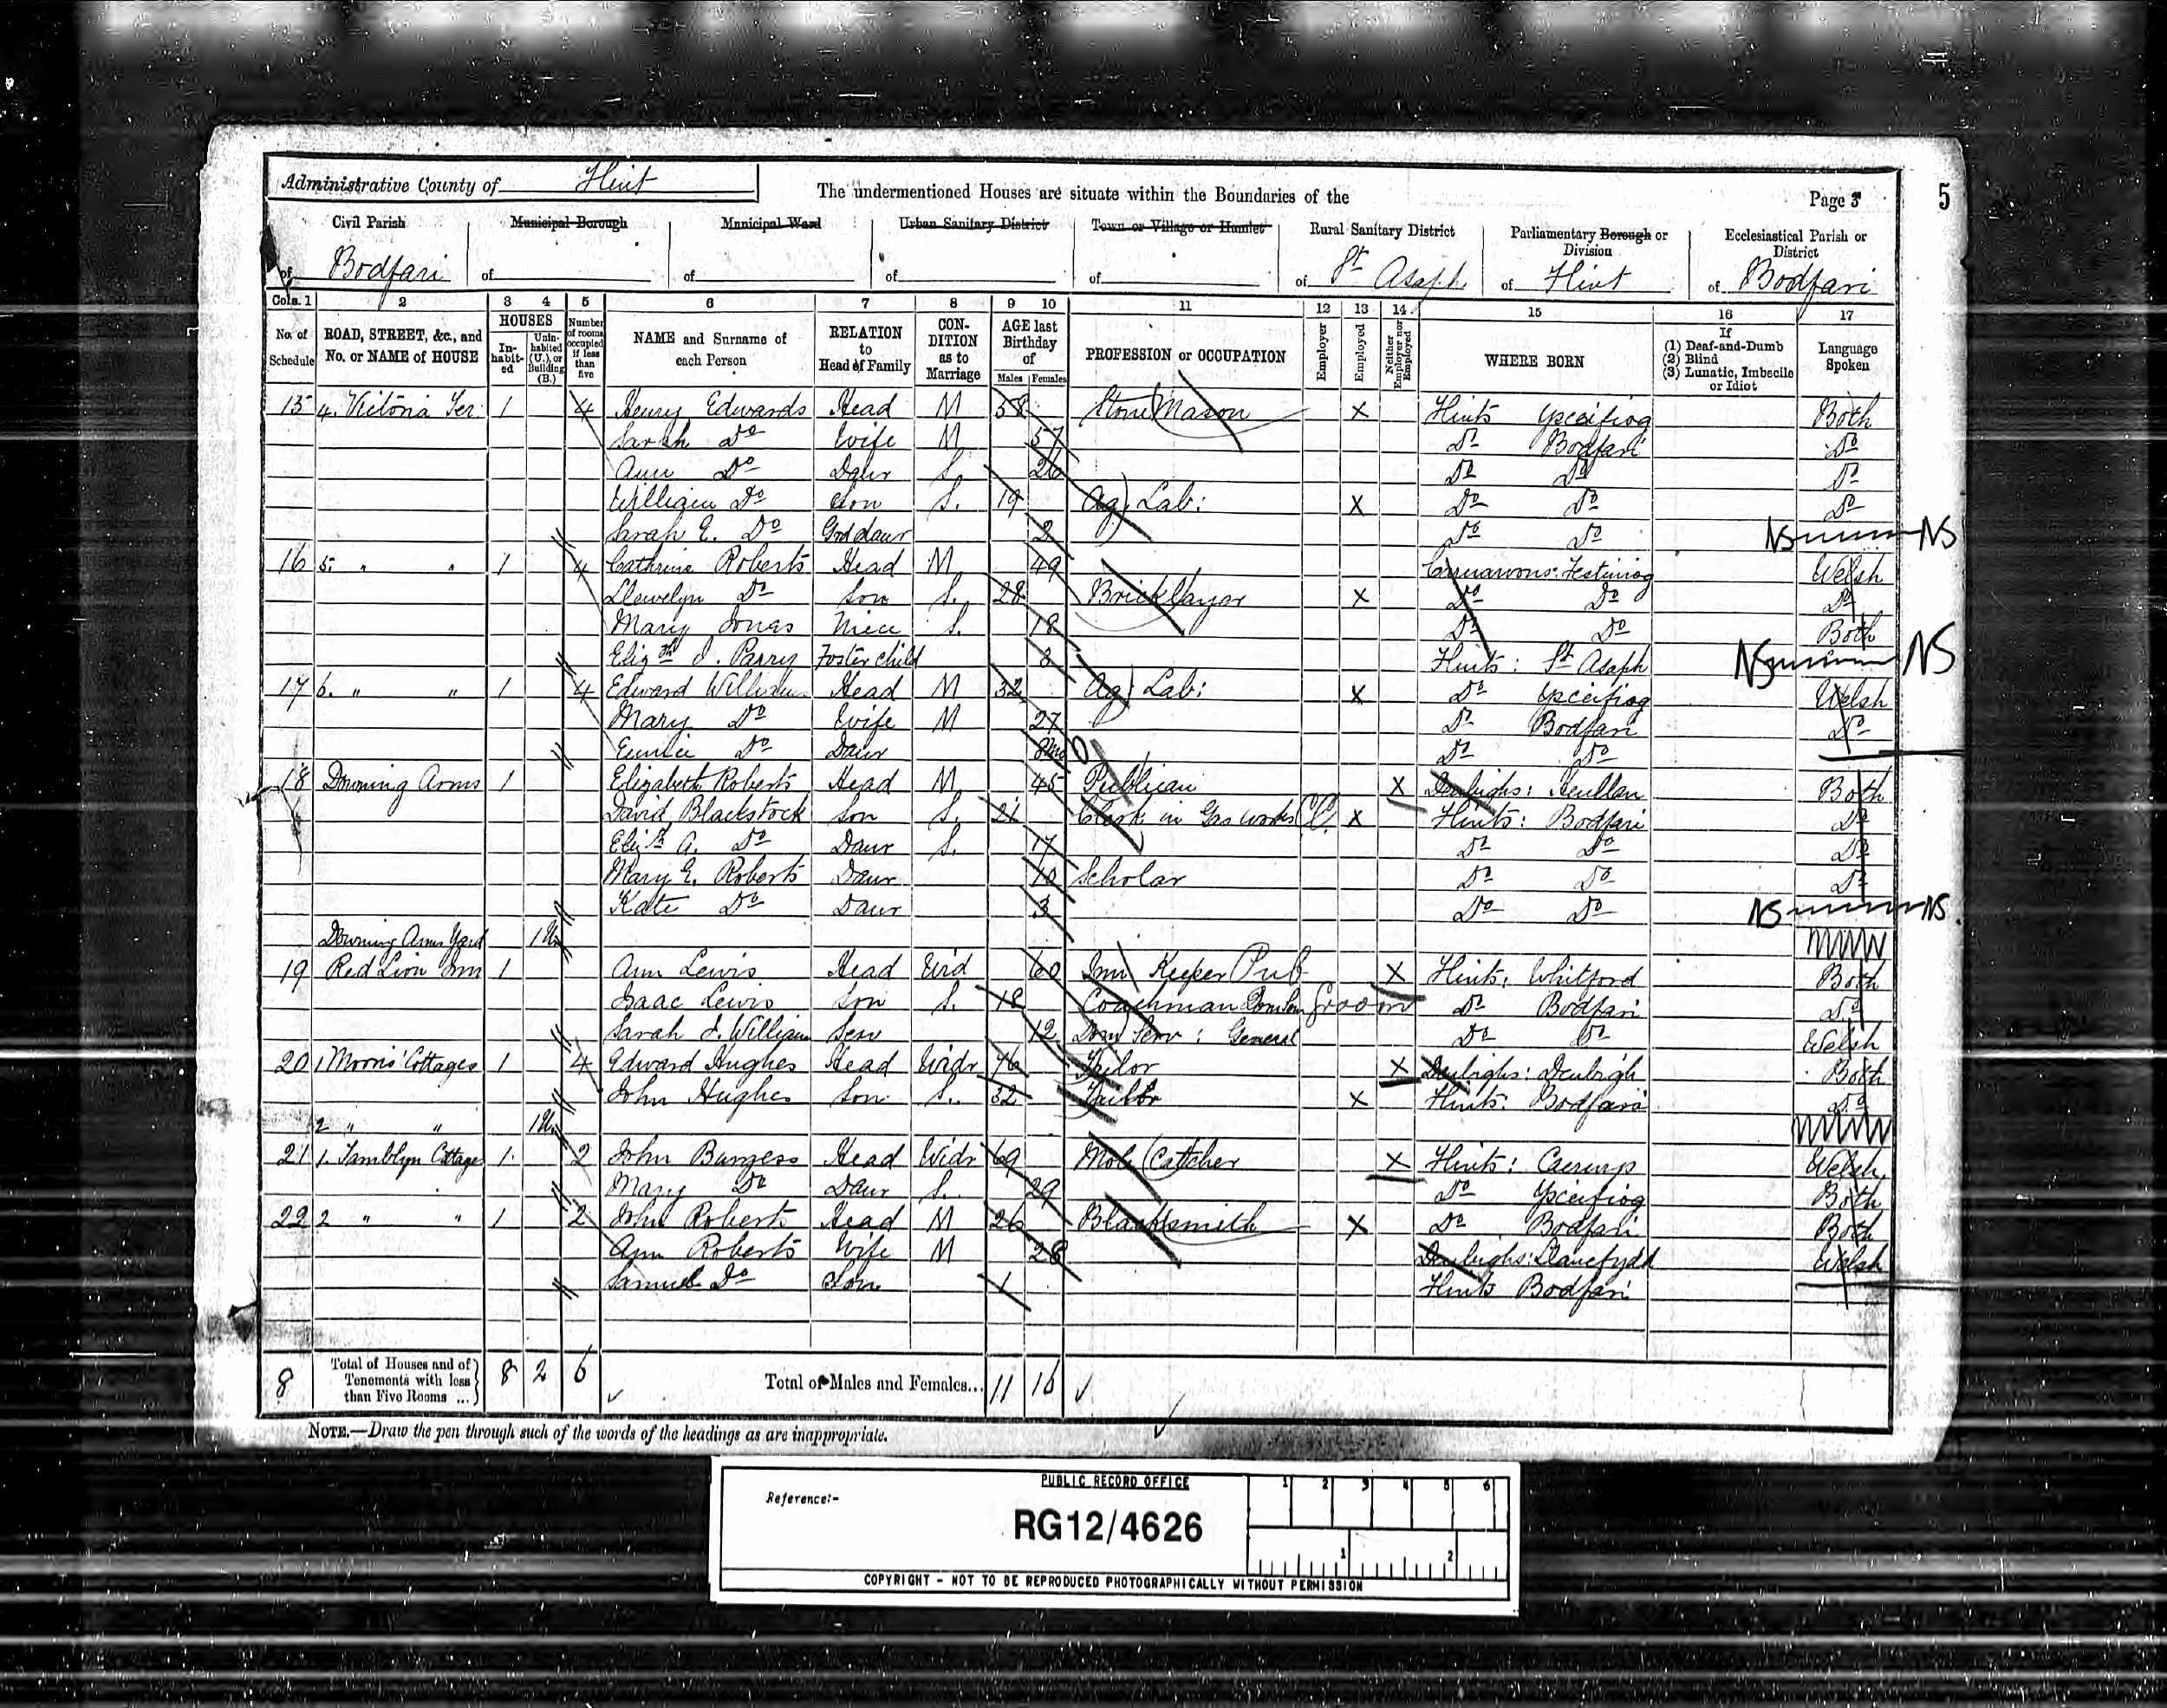 Administrative County of Flint
The undermentioned Houses are situate within the Boundaries of the
Page 3
5
Civil Parish of Bodfari
Municipal Borough of
Municipal Ward of
Urban Sanitary District of
Town or Village or Hamlet of
Rural Sanitary District of St Asaph
Parliamentary Borough or Division of Flint
Ecclesiastical Parish or District of Bodfari
Cols. 1 2 3 4 5 6 7 8 9 10 11 12 13 14 15 16 17
No. of Schedule
ROAD, STREET, &c., and No. or NAME of HOUSE
HOUSES
In-habit-ed
Unin-habited (U.), or Building (B.)
Number of rooms occupied if less than five
NAME and Surname of each Person
RELATION to Head of Family
CON-DITION as to Marriage
AGE last Birthday of
Males Females
PROFESSION or OCCUPATION
Employer
Employed
Neither Employer nor Employed
WHERE BORN
If (1) Deaf-and-Dumb (2) Blind (3) Lunatic, Imbecile or Idiot
Language Spoken
15 4. Victoria Ter. 1 4 Henry Edwards Head M 58 Stone Mason X Flints Ysceifiog Both
Sarah Do Wife M 57 Do Bodfari Do
Ann Do Daur S. 26 Do Do Do
William Do Son S. 19 Ag. Lab: X Do Do Do
Sarah E. Do Grd daur 2 Do Do NS NS
16 5. " " 1 4 Cathrine Roberts Head M 49 Carnarvons: Festiniog Welsh
Llewelyn Do Son S. 28 Bricklayer X Do Do Do
Mary Jones Niece S. 18 Do Do Both
Elizth J. Parry Foster child 3 Flints: St Asaph NS NS
17 6. " " 1 4 Edward Williams Head M 32 Ag. Lab: X Do Ysceifiog Welsh
Mary Do Wife M 27 Do Bodfari Do
Eunice Do Daur 8mo Do Do
18 Downing Arms 1 Elizabeth Roberts Head M 45 Publican X Denbighs: Henllan Both
David Blackstock Son S. 21 Clerk in Gas Works X Flints: Bodfari Do
Elizth A. Do Daur S. 17 Do Do Do
Mary E. Roberts Daur 10 Scholar Do Do Do
Kate Do Daur 3 Do Do NS NS
Downing Arms Yard 1U
19 Red Lion Inn 1 Ann Lewis Head Wid 60 Inn Keeper Pub X Flints: Whitford Both
Isaac Lewis Son S. 18 Coachman Dom Serv Groom Do Bodfari Do
Sarah J. Williams Serv 12 Dom Serv: General Do Do Welsh
20 1 Morris' Cottages 1 4 Edward Hughes Head Widr 76 Tailor X Denbighs: Denbigh Both
John Hughes Son S. 32 Tailor X Flints: Bodfari Do
2 " " 1U
21 1. Tamblyn Cottage 1. 2 John Burgess Head Widr 69 Mole Catcher X Flints: Caerwys Welsh
Mary Do Daur S. 29 Do Ysceifiog Both
22 2 " " 1 2 John Roberts Head M 26 Blacksmith X Do Bodfari Both
Ann Roberts Wife M 28 Denbighs: Llanefydd Welsh
Samuel Do Son 1 Flints Bodfari
8 Total of Houses and of Tenements with less than Five Rooms ... 8 2 6 Total of Males and Females... 11 16
NOTE.—Draw the pen through such of the words of the headings as are inappropriate.
PUBLIC RECORD OFFICE
Reference:-
RG12/4626
1 2 3 4 5 6
1 2
COPYRIGHT - NOT TO BE REPRODUCED PHOTOGRAPHICALLY WITHOUT PERMISSION